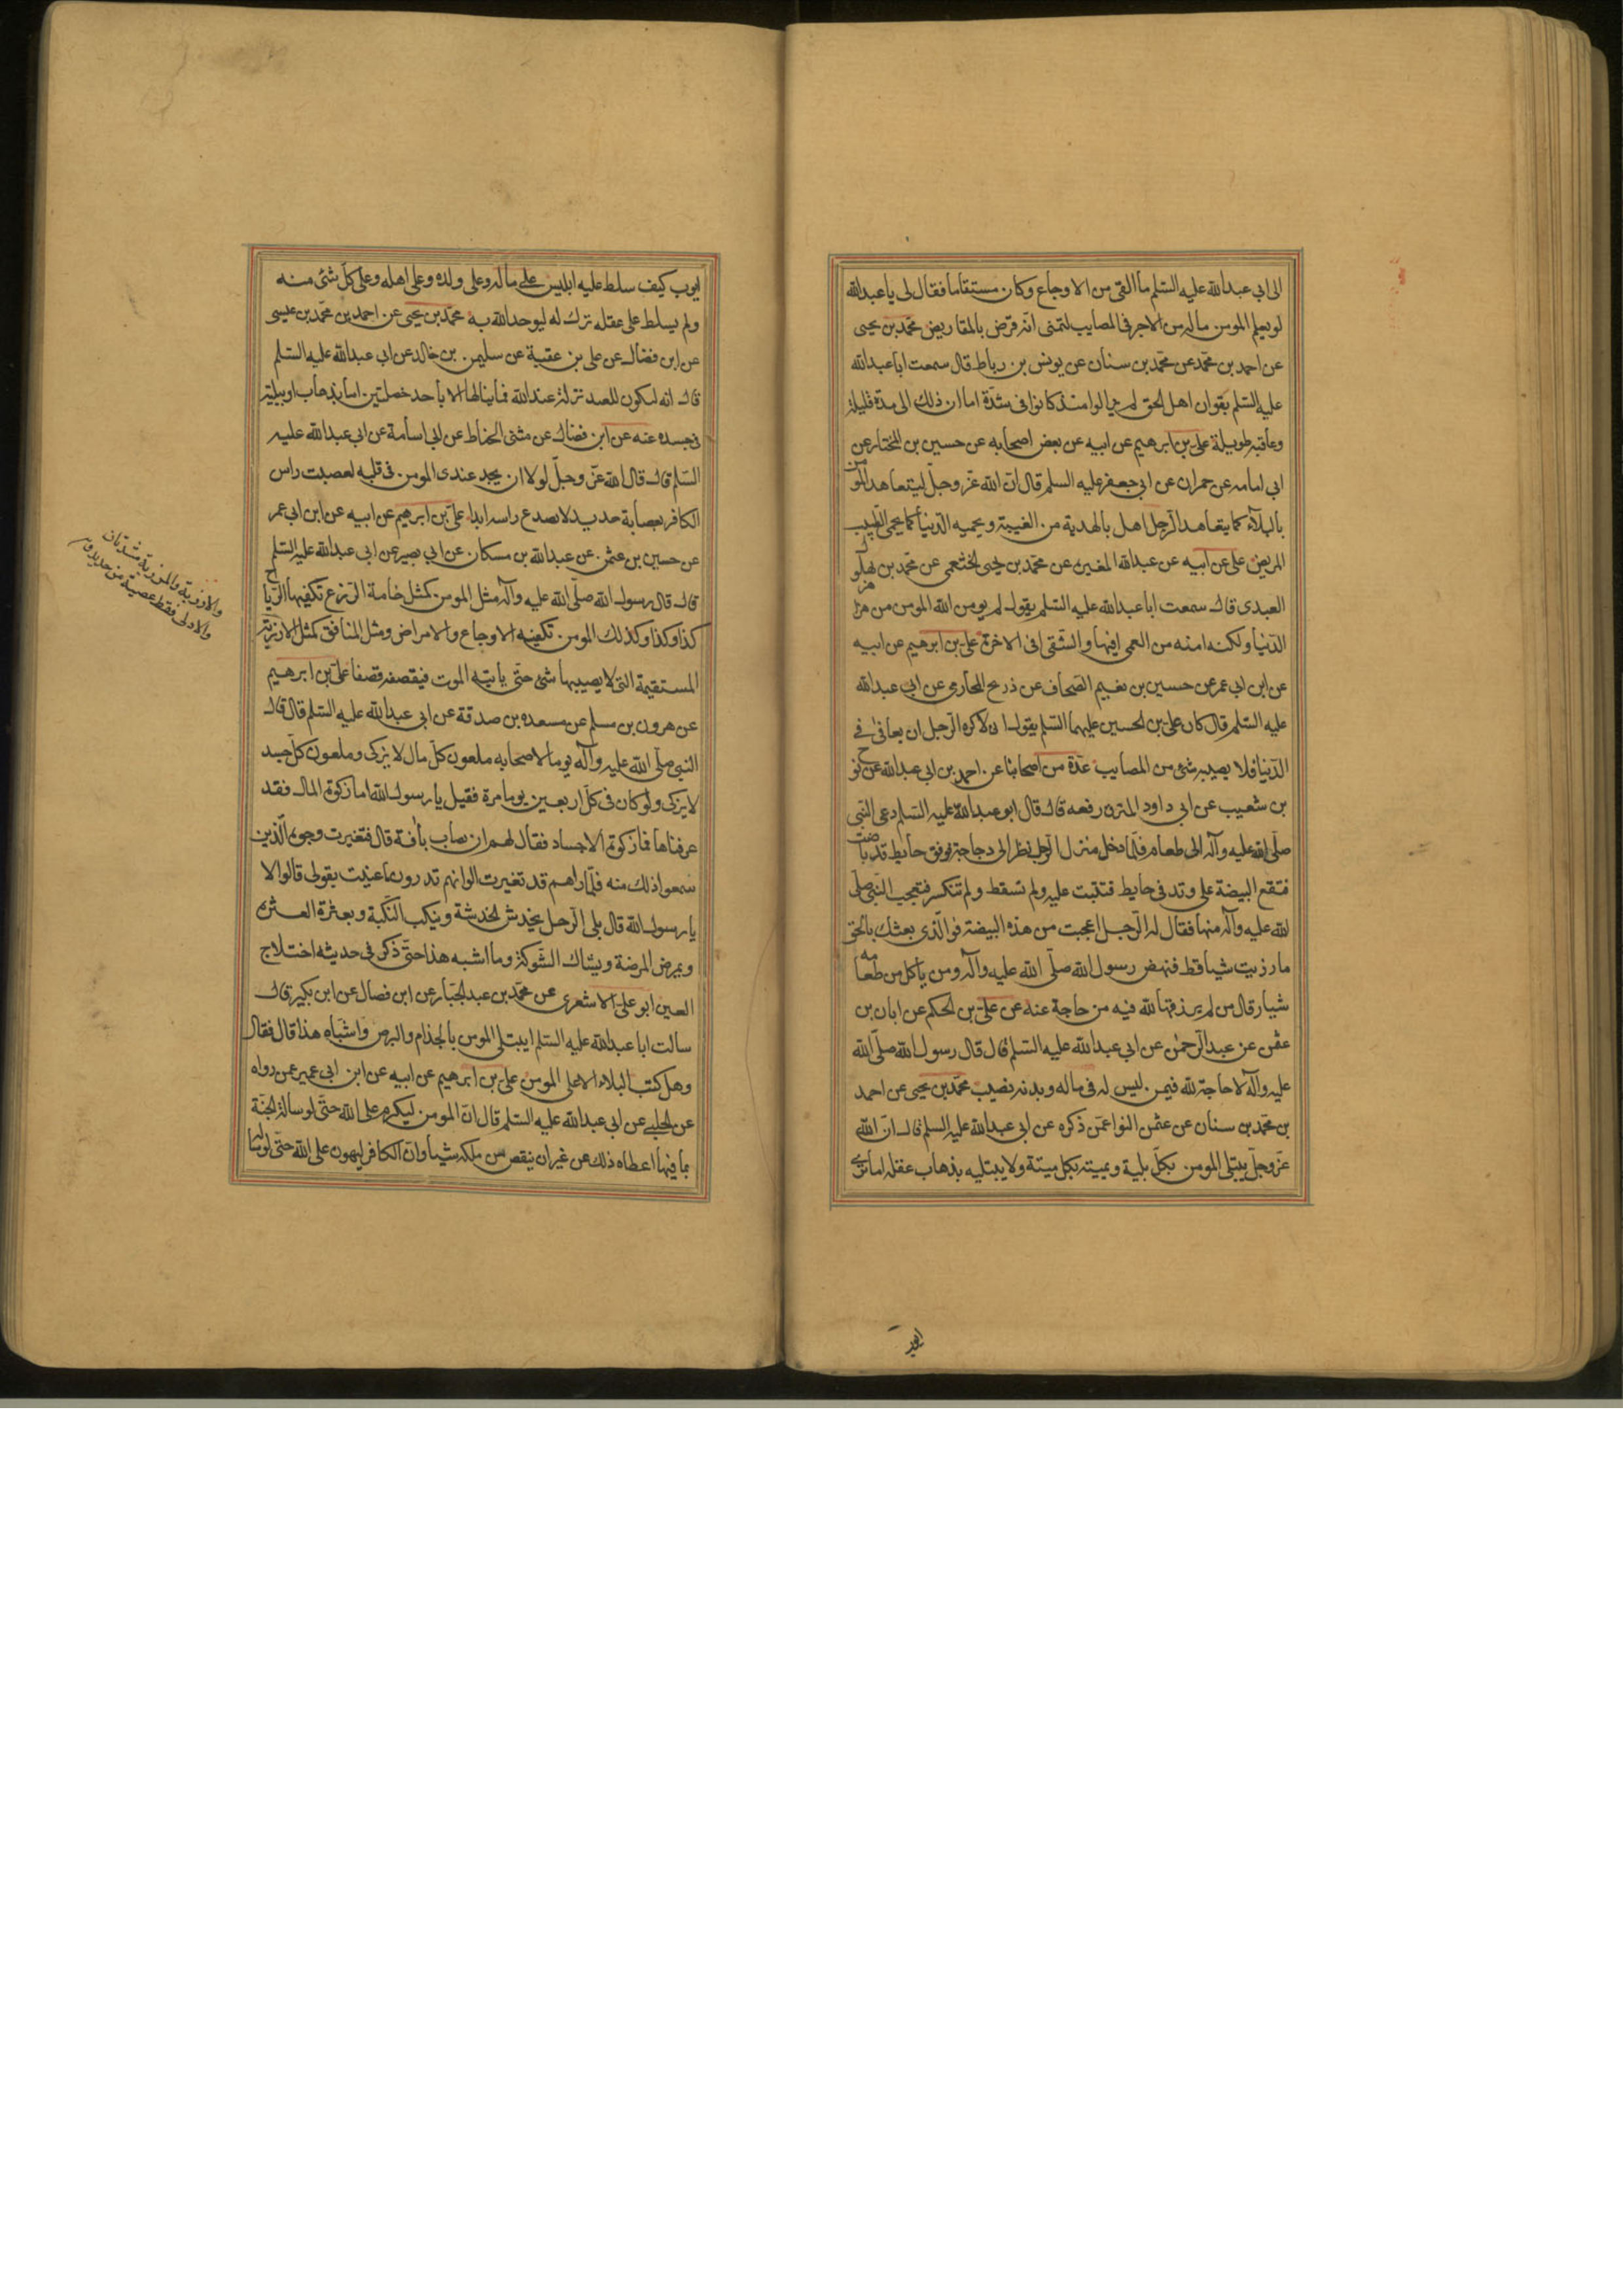 الى ابي عبدالله عليه السّلم ما القى من الاوجاع وكان مستقاما فقال لى يا عبدالله
لو يعلم المومن ماله من الاجر فى المصايب لتمنى انّه قرّض بالمقاريض محمّد بن يحيى
عن احمد بن محمّد عن محمّد بن سنان عن يونس بن رباط قال سمعت ابا عبدالله
عليه السّلم يقول ان اهل الحق لم يزالوا منذ كانوا فى شدّة اما ان ذلك الى مدة قليلة
وعاقبه طويلة على بن ابرهيم عن ابيه عن بعض اصحابه عن حسين بن المختار عن
ابي امامه عن حمران عن ابى جعفر عليه السلم قال انّ الله عزّ وجلّ ليتعاهد المومن
بالبلاء كما يتعاهد الرّجل اهله بالهدية من الغيبة ويحميه الدّنيا كما يحمى الطّبيب
المريض على عن ابيه عن عبدالله المغيرة عن محمّد بن يحيى الخثعمى عن محمّد بن بهلول
العبدى قال سمعت ابا عبدالله عليه السّلم يقول لم يومن الله المومن من هزاهز
الدّنيا ولكنه امنه من العمى فيها والشّقى فى الاخرة على بن ابرهيم عن ابيه
عن ابن ابى عمر عن حسين بن نعيم الصّحاف عن ذريح المحاربى عن ابى عبدالله
عليه السّلم قال كان على بن الحسين عليهما السّلم يقول انى لاكره الرّجل ان يعافى فى
الدّنيا فلا يصيبه شئ من المصايب عدّة من اصحابنا عن احمد بن ابى عبدالله عن نوح
بن شعيب عن ابى داود المسترق رفعه قال قال ابو عبدالله عليه السّلم دعى النبى
صلّى الله عليه وآله الى طعام فلمّا دخل منزل الرّجل نظر الى دجاجة فوق حايط قد باضت
فتقع البيضة على وتد فى حايط فتثبت عليه ولم تسقط ولم تنكسر فتعجب النّبى صلّى
الله عليه وآله منها فقال له الرّجل اعجبت من هذه البيضة فوالّذى بعثك بالحق
ما رزيت شيا قط فنهض رسول الله صلّى الله عليه وآله ومن ياكل من طعامه
شيا وقال من لم يرذ فما لله فيه من حاجة عنه عن على بن الحكم عن ابان بن
عثمن عن عبد الرّحمن عن ابى عبدالله عليه السّلم قال قال رسول الله صلّى الله
عليه وآله لا حاجة لله فيمن ليس له فى ماله وبدنه نصيب محمّد بن يحيى عن احمد
بن محمّد بن سنان عن عثمن النوا عمّن ذكره عن ابى عبدالله عليه السلم قال انّ الله
عزّ وجلّ يبتلى المومن بكلّ بلية ويميته بكل ميتة ولا يبتليه بذهاب عقله اما ترى
ايوب كيف سلط عليه ابليس على ماله وعلى ولده وعلى اهله وعلى كلّ شئ منه
ولم يسلط على عقله ترك له ليوحد الله به محمّد بن يحيى عن احمد بن محمّد بن عيسى
عن ابن فضال عن على بن عقبة عن سليمن بن خالد عن ابى عبدالله عليه السّلم
قال انه ليكون للعبد منزلة عند الله فما ينالها الا باحد خصلتين اما بذهاب او ببلية
فى جسده عنه عن ابن فضال عن مثنى الحناط عن ابى اسامة عن ابى عبدالله عليه
السّلم قال قال الله عزّ وجلّ لولا ان يجد عندى المومن فى قلبه لعصبت راس
الكافر بعصابة حديد لا يصدع راسه ابدا على بن ابرهيم عن ابيه عن ابن ابى عمر
عن حسين بن عثمن عن عبدالله بن مسكان عن ابى بصير عن ابى عبدالله عليه السّلم
قال قال رسول الله صلّى الله عليه وآله مثل المومن كمثل خامة الزّرع تكفيها الرّياح
كذا وكذا وكذلك المومن تكفيه الاوجاع والامراض ومثل المنافق كمثل الارزبة
المستقيمة التى لا يصيبها شئ حتّى ياتيه الموت فيقصفه قصفا على بن ابرهيم
عن هرون بن مسلم عن مسعده بن صدقة عن ابى عبدالله عليه السّلم قال قال
النبى صلّى الله عليه وآله يوما لاصحابه ملعون كلّ مال لا يزكى وملعون كلّ جسد
لا يزكى ولو كان فى كلّ اربعين يوما مرة فقيل يا رسول الله اما زكوة المال فقد
عرفناها فما زكوة الاجساد فقال لهم ان تصاب بآفة قال فتغيرت وجوه الّذين
سمعوا ذلك منه فلمّا راهم قد تغيرت الوانهم قال تدرون ما عنيت بقولى قالوا لا
يا رسول الله قال بلى الرّجل يخدش الخدشة وينكب النّكبة ويعثر العثرة
ويمرض المرضة ويشاك الشّوكة وما اشبه هذا حتى ذكر فى حديثه اختلاج
العين ابو على الاشعرى عن محمّد بن عبد الجبّار عن ابن فضال عن ابن بكير قال
سالت ابا عبدالله عليه السّلم ايبتلى المومن بالجذام والبرص واشباه هذا قال فقال
وهل كتب البلاء الا على المومن على بن ابرهيم عن ابيه عن ابن ابى عمير عن رواه
عن الحلبى عن ابى عبدالله عليه السّلم قال انّ المومن ليكرم على الله حتى لو ساله الجنّة
بما فيها اعطاه ذلك من غير ان ينقص من ملكه شيا وان الكافر ليهون على الله حتى لو ساله
والارزبة والمرزبة مشددتان
والاولى فقط عصية من حديد
ايوب